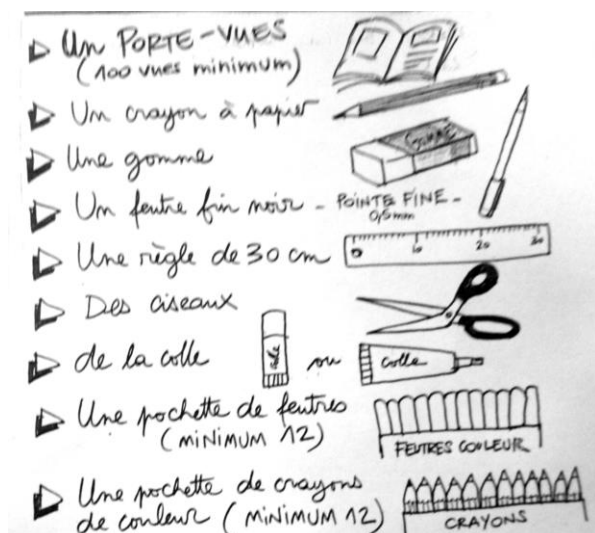 Un PORTE-VUES
(100 vues minimum)
Un crayon à papier
Une gomme
GOMME
Un feutre fin noir - POINTE FINE -
0,5mm
Une règle de 30 cm
0 10 20 30
Des ciseaux
de la colle colle ou colle
Une pochette de feutres
(MINIMUM 12)
FEUTRES COULEUR
Une pochette de crayons
de couleur (MINIMUM 12)
CRAYONS